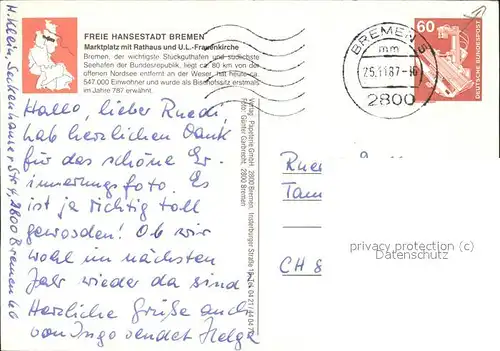 FREIE HANSESTADT BREMEN
Marktplatz mit Rathaus und U.L.-Frauenkirche
Bremen, der wichtigste Stückguthafen und südlichste
Seehafen der Bundesrepublik, liegt ca 80 km von der
offenen Nordsee entfernt an der Weser, hat heute ca.
547.000 Einwohner und wurde als Bischofssitz erstmals
im Jahre 787 erwähnt.
Hallo, lieber Ruedi,
hab herzlichen Dank
für das schöne Er-
innerungsfoto. Es
ist ja richtig toll
geworden! Ob wir
wohl im nächsten
Jahr wieder da sind
Herzliche Grüße auch
von Ingo sendet Helga
H. Klein, Str. 4, 2800 Bremen 60
Verlag: Papeterie GmbH, 2800 Bremen, Insterburger Straße
Foto: Günter Garbrecht, 2800 Bremen
BREMEN 5
mm
25.11.87
2800
60
DEUTSCHE BUNDESPOST
CH 8
privacy protection
Datenschutz